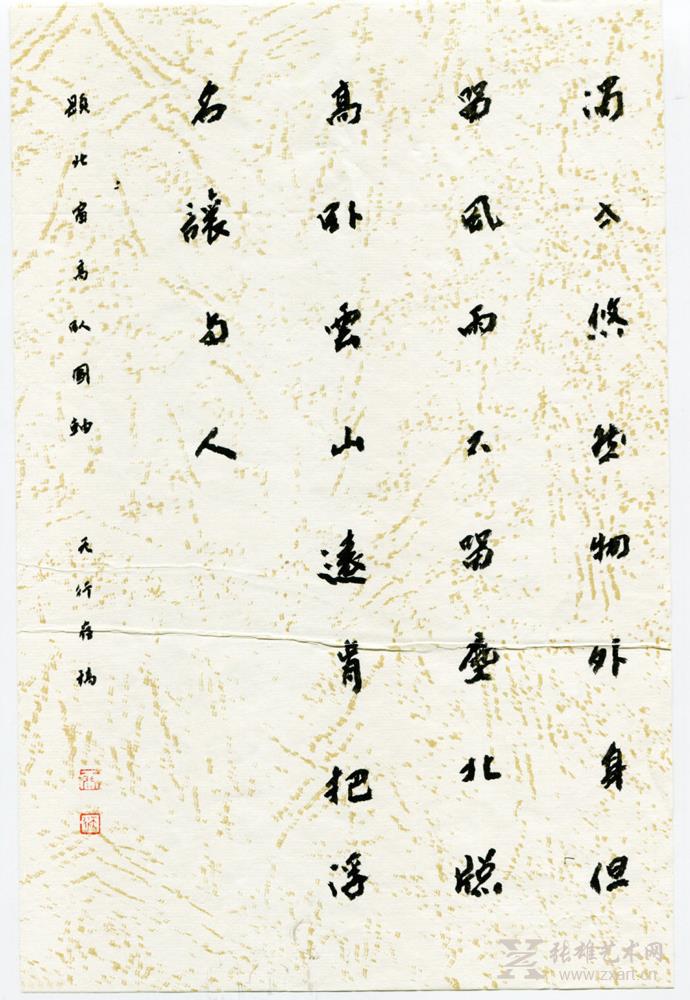 悠然物外身但
留風雨不留塵北牕
高卧雲山遠肯把浮
名讓与人
題北窗高卧圖軸
行存稿
张雄艺术网
www.zxart.cn